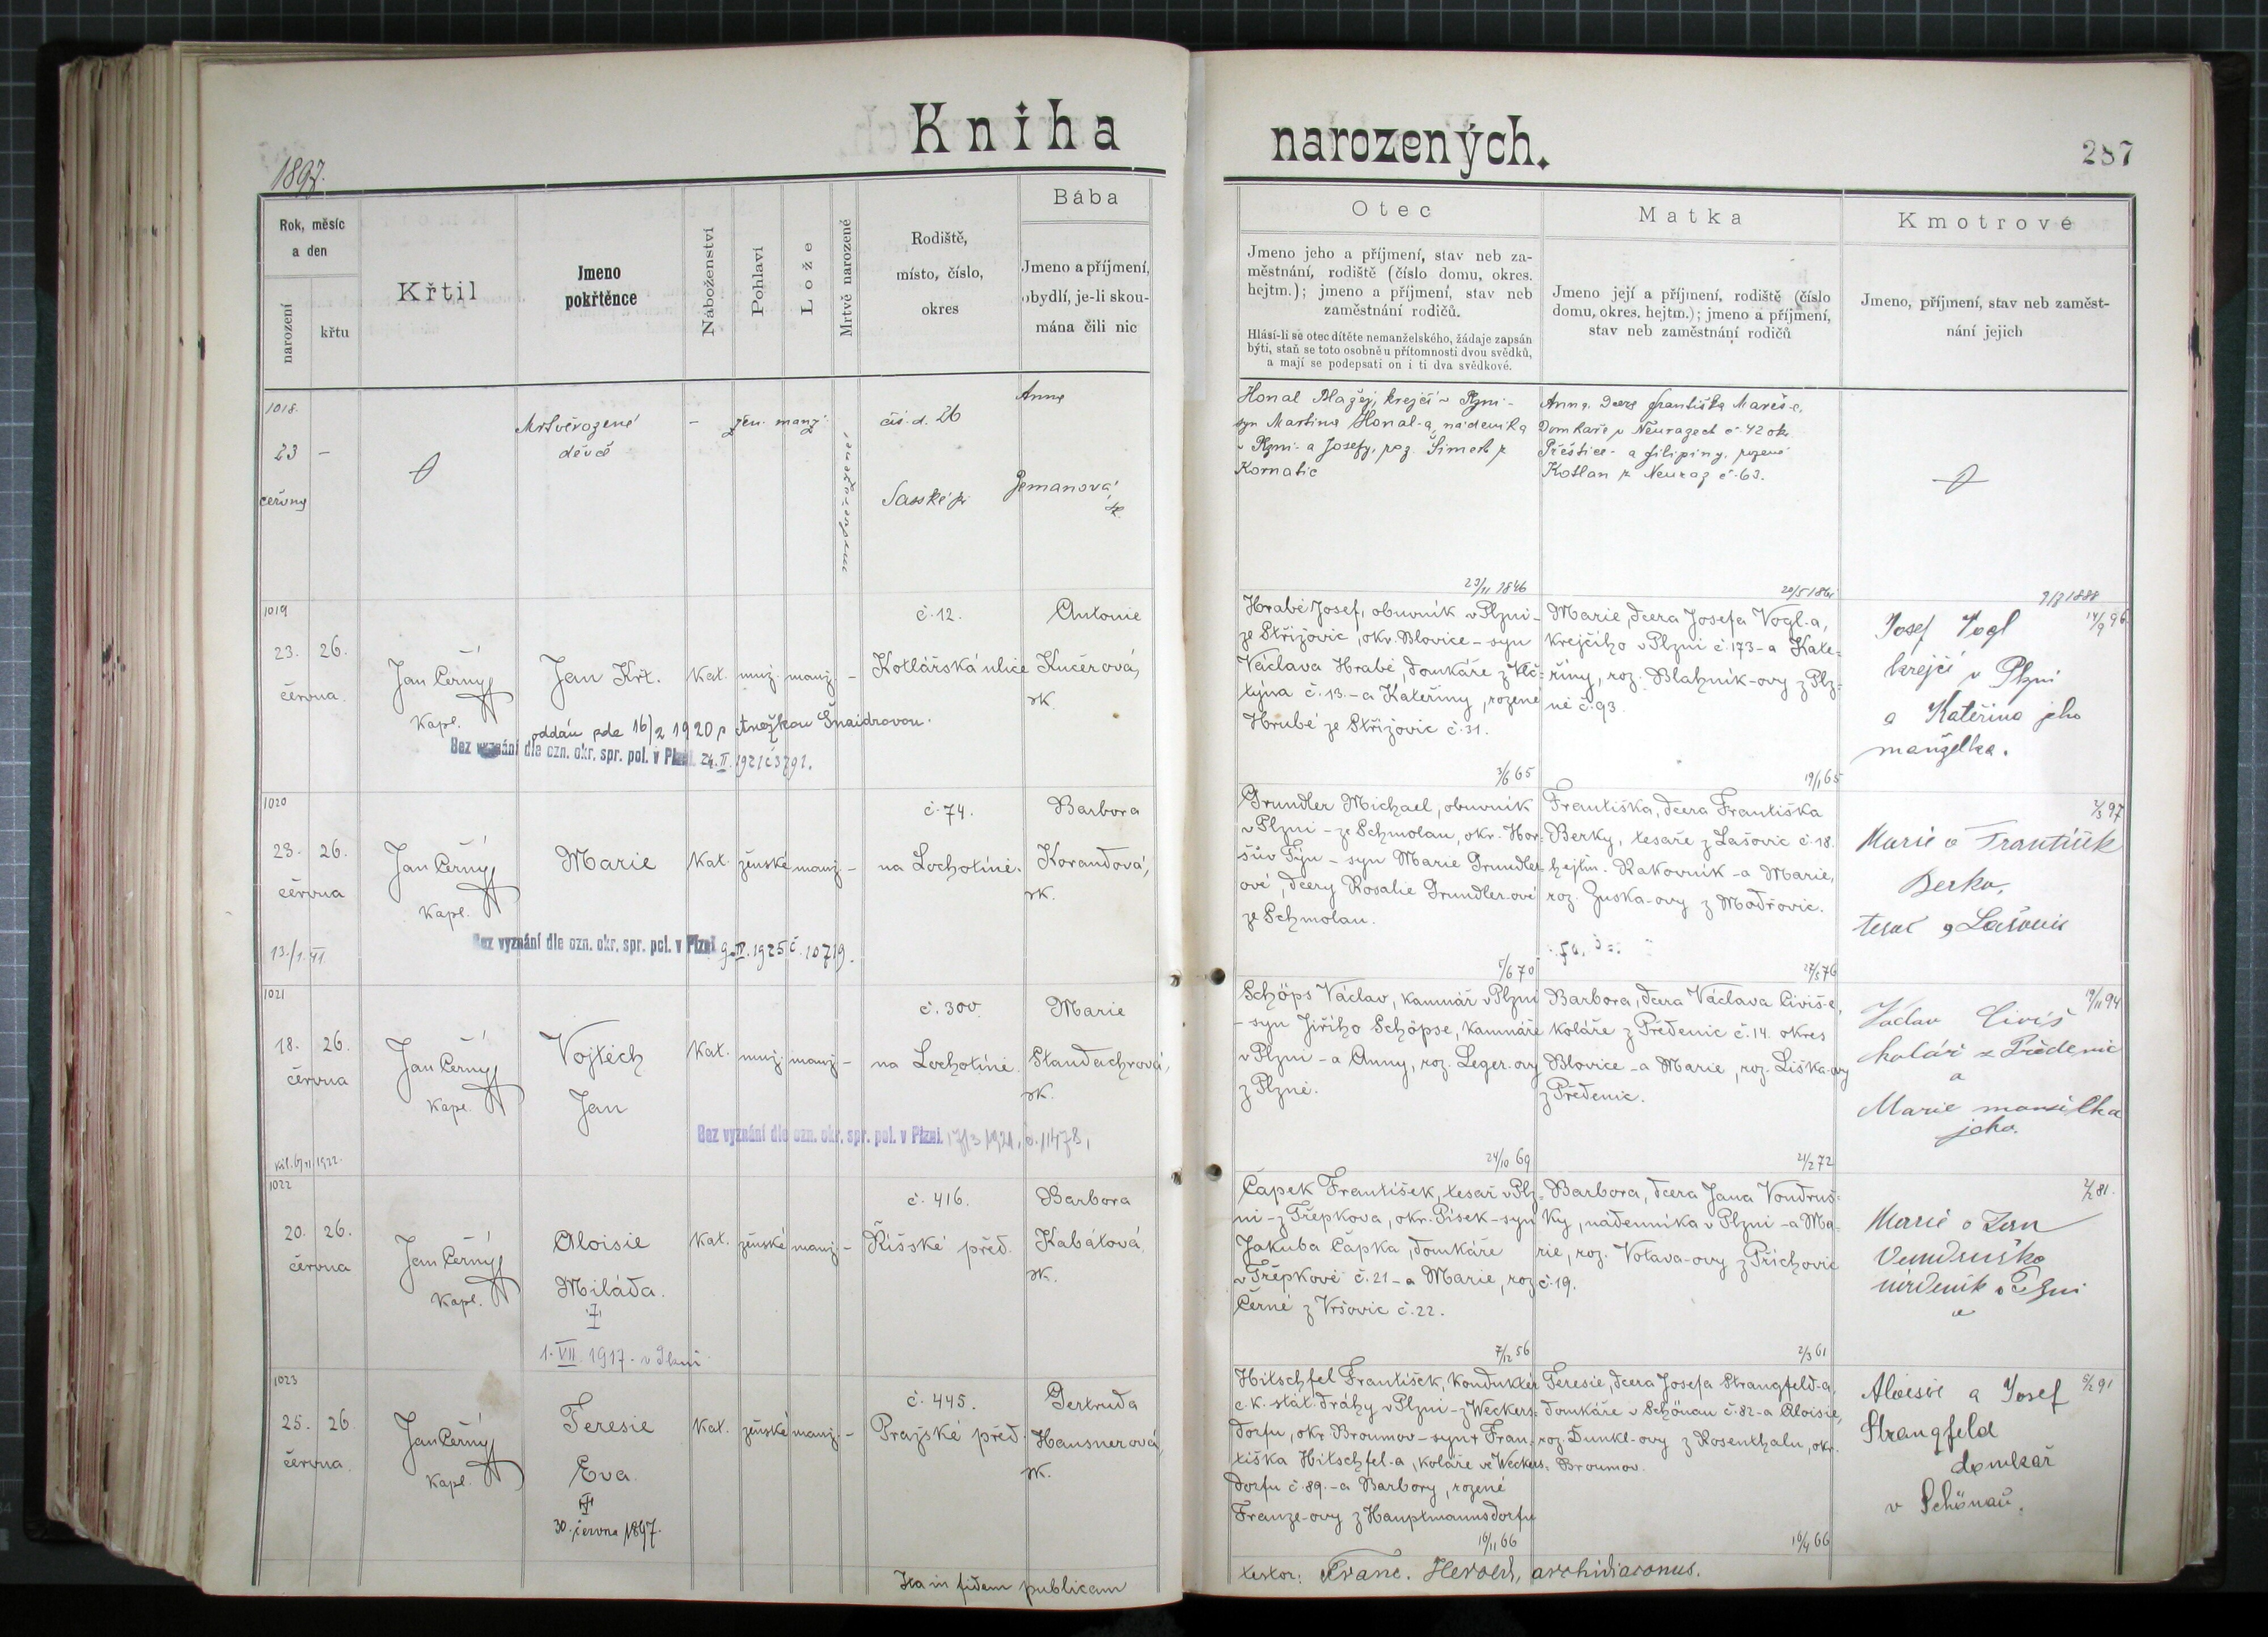 Kniha
narozených.
287
1897.
Rok, měsíc
a den
narození
křtu
Křtil
Jmeno
pokřtěnce
Náboženství
Pohlaví
Lože
Mrtvě narozené
Rodiště,
místo, číslo,
okres
Bába
Jmeno a příjmení,
obydlí, je-li skou-
mána čili nic
Otec
Jmeno jeho a příjmení, stav neb za-
městnání, rodiště (číslo domu, okres.
hejtm.); jmeno a příjmení, stav neb
zaměstnání rodičů.
Hlásí-li se otec dítěte nemanželského, žádaje zapsán
býti, staň se toto osobně u přítomnosti dvou svědků,
a mají se podepsati on i ti dva svědkové.
Matka
Jmeno její a příjmení, rodiště (číslo
domu, okres. hejtm.); jmeno a příjmení,
stav neb zaměstnání rodičů
Kmotrové
Jmeno, příjmení, stav neb zaměst-
nání jejich
1018.
23 –
června
Mrtvěrozené
děvče
– žen. manž.
mrtvěrozené
čís. d. 26
Saské př.
Anna
Zemanová,
zk.
Honal Blažej, krejčí v Plzni –
syn Martina Honal-a, nádeníka
v Plzni – a Josefy, roz. Šimet z
Kornatic
Anna, dcera Františka Mareš-e,
Domkáře v Neurazech č. 42 ok.
Přeštice – a Filipiny, rozené
Kotlan z Neuraz č. 63.
23/11 1846
20/5 1861
9/2 1888
1019
23. 26.
června
Jan Černý
Kapl.
Jan Křt.
Kat. muž. manž. –
č. 12.
Kotlářská ulice
Antonie
Kučerová,
zk.
oddán zde 16/2 1920 s Anežkou Šnaidrovou.
Bez vyznání dle ozn. okr. spr. pol. v Plzni 24. II. 1921 č 3791.
Hrabě Josef, obuvník v Plzni –
ze Střížovic, okr. Blovice – syn
Václava Hrabě, domkáře z Vlč-
týna č. 13. – a Kateřiny, rozené
Hrubé ze Střížovic č. 31.
Marie, dcera Josefa Vogl-a,
krejčího v Plzni č. 173 – a Kate-
řiny, roz. Blahník-ovy z Plz-
ně č. 93.
Josef Vogl
krejčí v Plzni
a Kateřina jeho
manželka.
14/9 96
3/6 65
19/1 65
1020
23. 26.
června
Jan Černý
Kapl.
Marie
Kat. ženské manž. –
č. 74.
na Lochotíně.
Barbora
Korandová,
zk.
Bez vyznání dle ozn. okr. spr. pol. v Plzni 9. IV. 1925 č. 10719.
Grundler Michael, obuvník
v Plzni – ze Schmolau, okr. Hor-
šův Týn – syn Marie Grundler-
ové, dcery Rosalie Grundler-ové
ze Schmolau.
Františka, dcera Františka
Berky, tesaře z Lašovic č. 18.
hejtm. Rakovník – a Marie,
roz. Zuska-ovy z Modřovic.
Marie a František
Berka,
tesař z Lašovic
2/3 97
5/6 70
27/5 76
1021
18. 26.
června
Jan Černý
Kapl.
Vojtěch
Jan
Kat. muž. manž. –
č. 300.
na Lochotíně.
Marie
Standachrová,
zk.
Bez vyznání dle ozn. okr. spr. pol. v Plzni. 17/3 1921, č. 11478,
Schöps Václav, kamnář v Plzni
– syn Jiřího Schöpse, kamnáře
v Plzni – a Anny, roz. Leger-ovy
z Plzně.
Barbora, dcera Václava Civiš-e,
koláře z Předenic č. 14. okres
Blovice – a Marie, roz. Liška-ovy
z Předenic.
Václav Civiš
kolář z Předenic
a
Marie manželka
jeho.
19/11 94
24/10 69
21/2 72
1022
20. 26.
června
Jan Černý
Kapl.
Aloisie
Miláda.
1. VII. 1917. v Plzni
Kat. ženské manž. –
č. 416.
Říšské před.
Barbora
Kabátová,
zk.
Čapek František, tesař v Plz-
ni – z Třepkova, okr. Písek – syn
Jakuba Čapka, domkáře
v Třepkově č. 21 – a Marie, roz.
Černé z Vršovic č. 22.
Barbora, dcera Jana Vondruš-
ky, nádenníka v Plzni – a Ma-
rie, roz. Votava-ovy z Příchovic
č. 19.
Marie a Jan
Vondruška
nádeník v Plzni
7/12 56
2/3 61
1023
25. 26.
června
Jan Černý
Kapl.
Teresie
Eva.
30. června 1897.
Kat. ženské manž. –
č. 445.
Pražské před.
Gertruda
Hausnerová,
zk.
Hitschfel František, konduktér
c. k. stát. dráhy v Plzni – z Weckers-
dorfu, okr. Broumov – syn † Fran-
tiška Hitschfel-a, koláře ve Weckers-
dorfu č. 89. – a Barbory, rozené
Franze-ovy z Hauptmannsdorfu
Teresie, dcera Josefa Strangfeld-a,
domkáře v Schönau č. 82 – a Aloisie,
roz. Dunkl-ovy z Rosenthalu, okr.
Broumov.
Aloisie a Josef
Strangfeld
domkář
v Schönau.
5/2 91
16/11 66
16/4 66
Ita in fidem publicam
testor: Franc. Herold, archidiaconus.